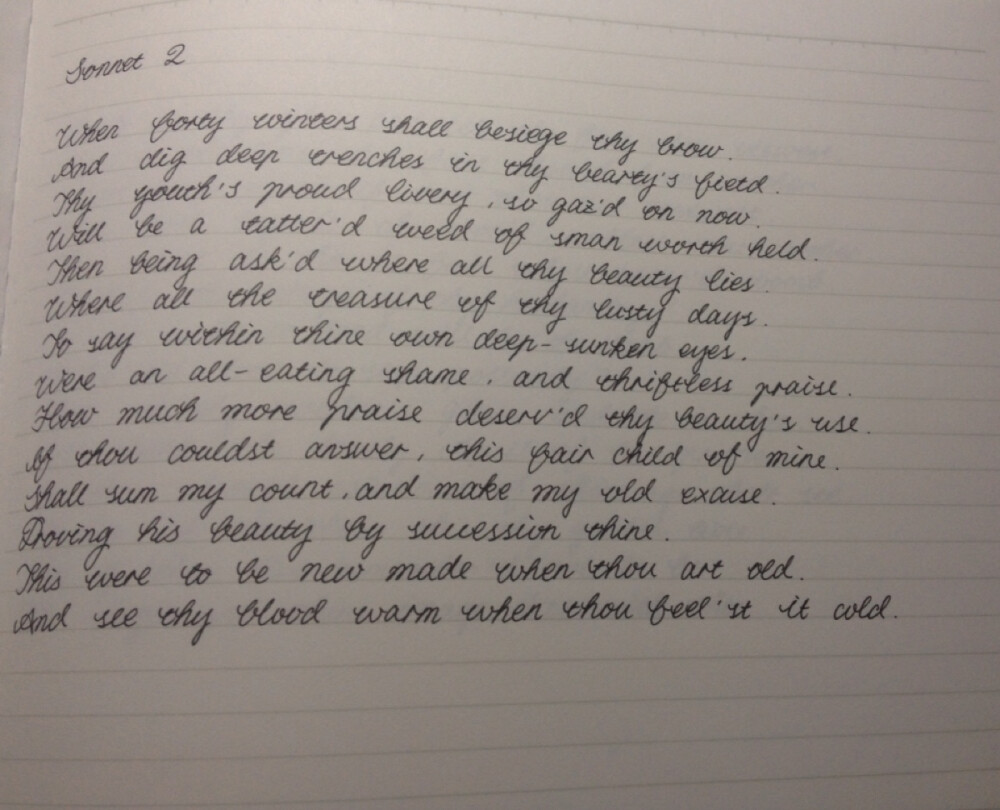 Sonnet 2
When forty winters shall besiege thy brow.
And dig deep trenches in thy bearty's field.
Thy youth's proud livery, so gaz'd on now.
Will be a tatter'd weed of sman worth held.
Then being ask'd where all thy beauty lies.
Where all the treasure of thy lusty days.
To say within thine own deep-sunken eyes.
Were an all-eating shame, and thriftless praise.
How much more praise deserv'd thy beauty's use.
If thou couldst answer, this fair child of mine.
Shall sum my count, and make my old excuse.
Proving his beauty by succession thine.
This were to be new made when thou art old.
And see thy blood warm when thou feel'st it cold.